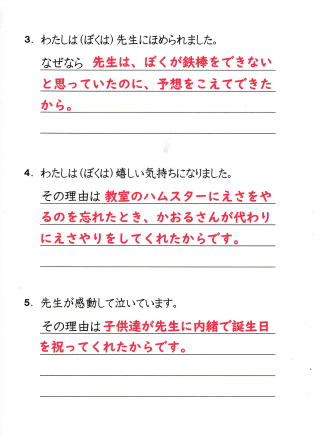 3. わたしは（ぼくは）先生にほめられました。
なぜなら 先生は、ぼくが鉄棒をできない
と思っていたのに、予想をこえてできた
から。
4. わたしは（ぼくは）嬉しい気持ちになりました。
その理由は 教室のハムスターにえさをや
るのを忘れたとき、かおるさんが代わり
にえさやりをしてくれたからです。
5. 先生が感動して泣いています。
その理由は 子供達が先生に内緒で誕生日
を祝ってくれたからです。